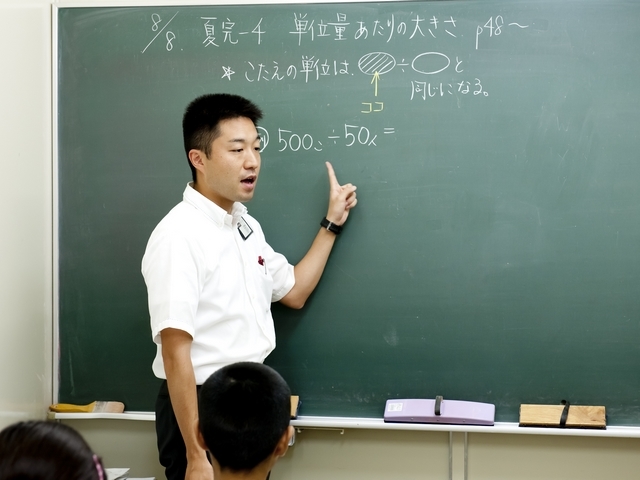 8/8. 夏完-4 単位量あたりの大きさ p48～
* こたえの単位は、÷と
同じになる。
ココ
500÷50=